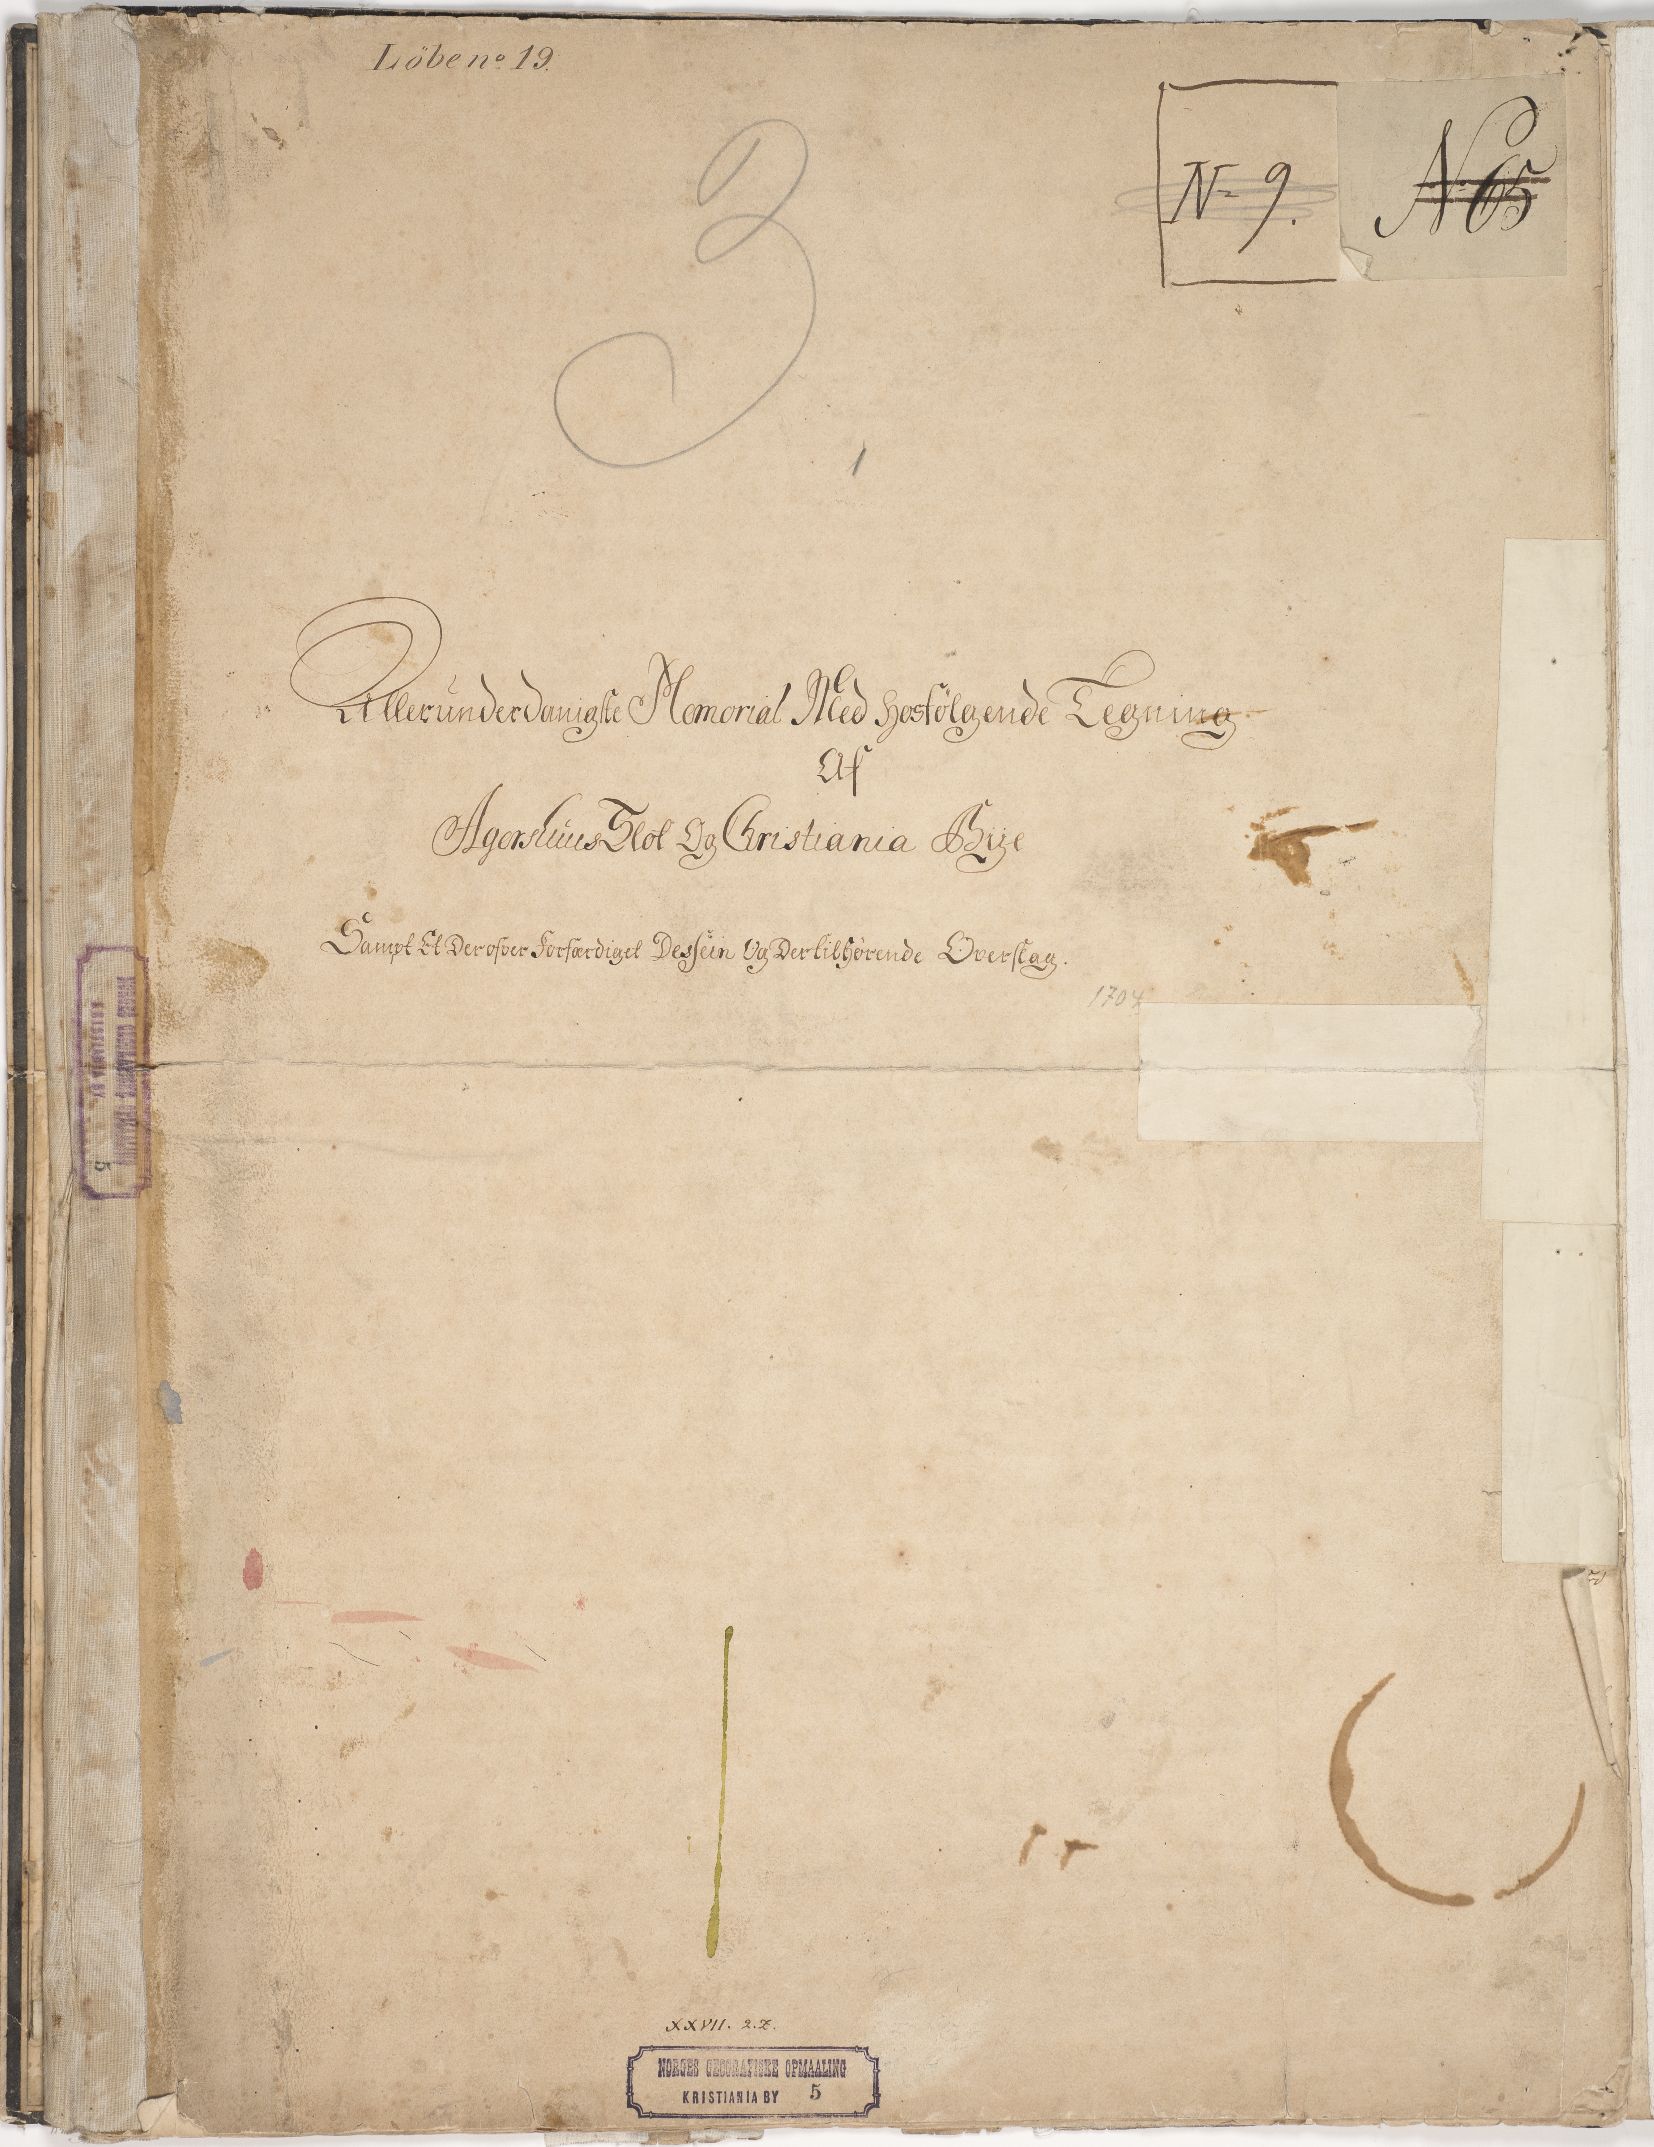 Löbe no 19.
N= 9.
N 65
3
Allerunderdanigste Memorial Med hosfölgende Tegning
Af
Agershuus Slot Og Christiania Bÿe
Sampt Et Derofver Forfærdiget Dessein Og Dertilhørende Overslag.
1704
NORGES GEOGRAFISKE OPMAALING
KRISTIANIA BY
5
XXVII. 2.Z.
NORGES GEOGRAFISKE OPMAALING
KRISTIANIA BY 5